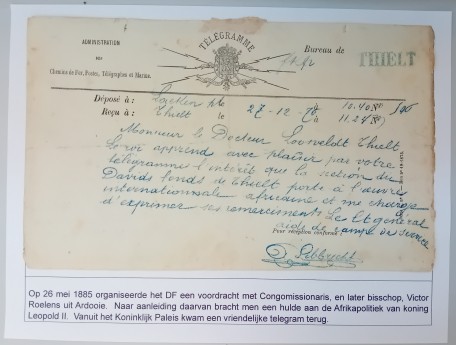 TELEGRAMME
ADMINISTRATION
DES
Chemins de Fer, Postes, Télégraphes et Marine.
Bureau de
THIELT
Déposé à : Laeken le 27-12- 10.40
Reçu à : Thielt le à 11.24
Monsieur le Docteur Thielt
Le roi apprend avec plaisir par votre
télégramme l'intérêt que la section du
Davids fonds de Thielt porte à l'œuvre
internationale africaine et me charge
d'exprimer ses remerciments Le Lt général
aide de camp de service
Pour réception conforme :
Op 26 mei 1885 organiseerde het DF een voordracht met Congomissionaris, en later bisschop, Victor
Roelens uit Ardooie. Naar aanleiding daarvan bracht men een hulde aan de Afrikapolitiek van koning
Leopold II. Vanuit het Koninklijk Paleis kwam een vriendelijke telegram terug.